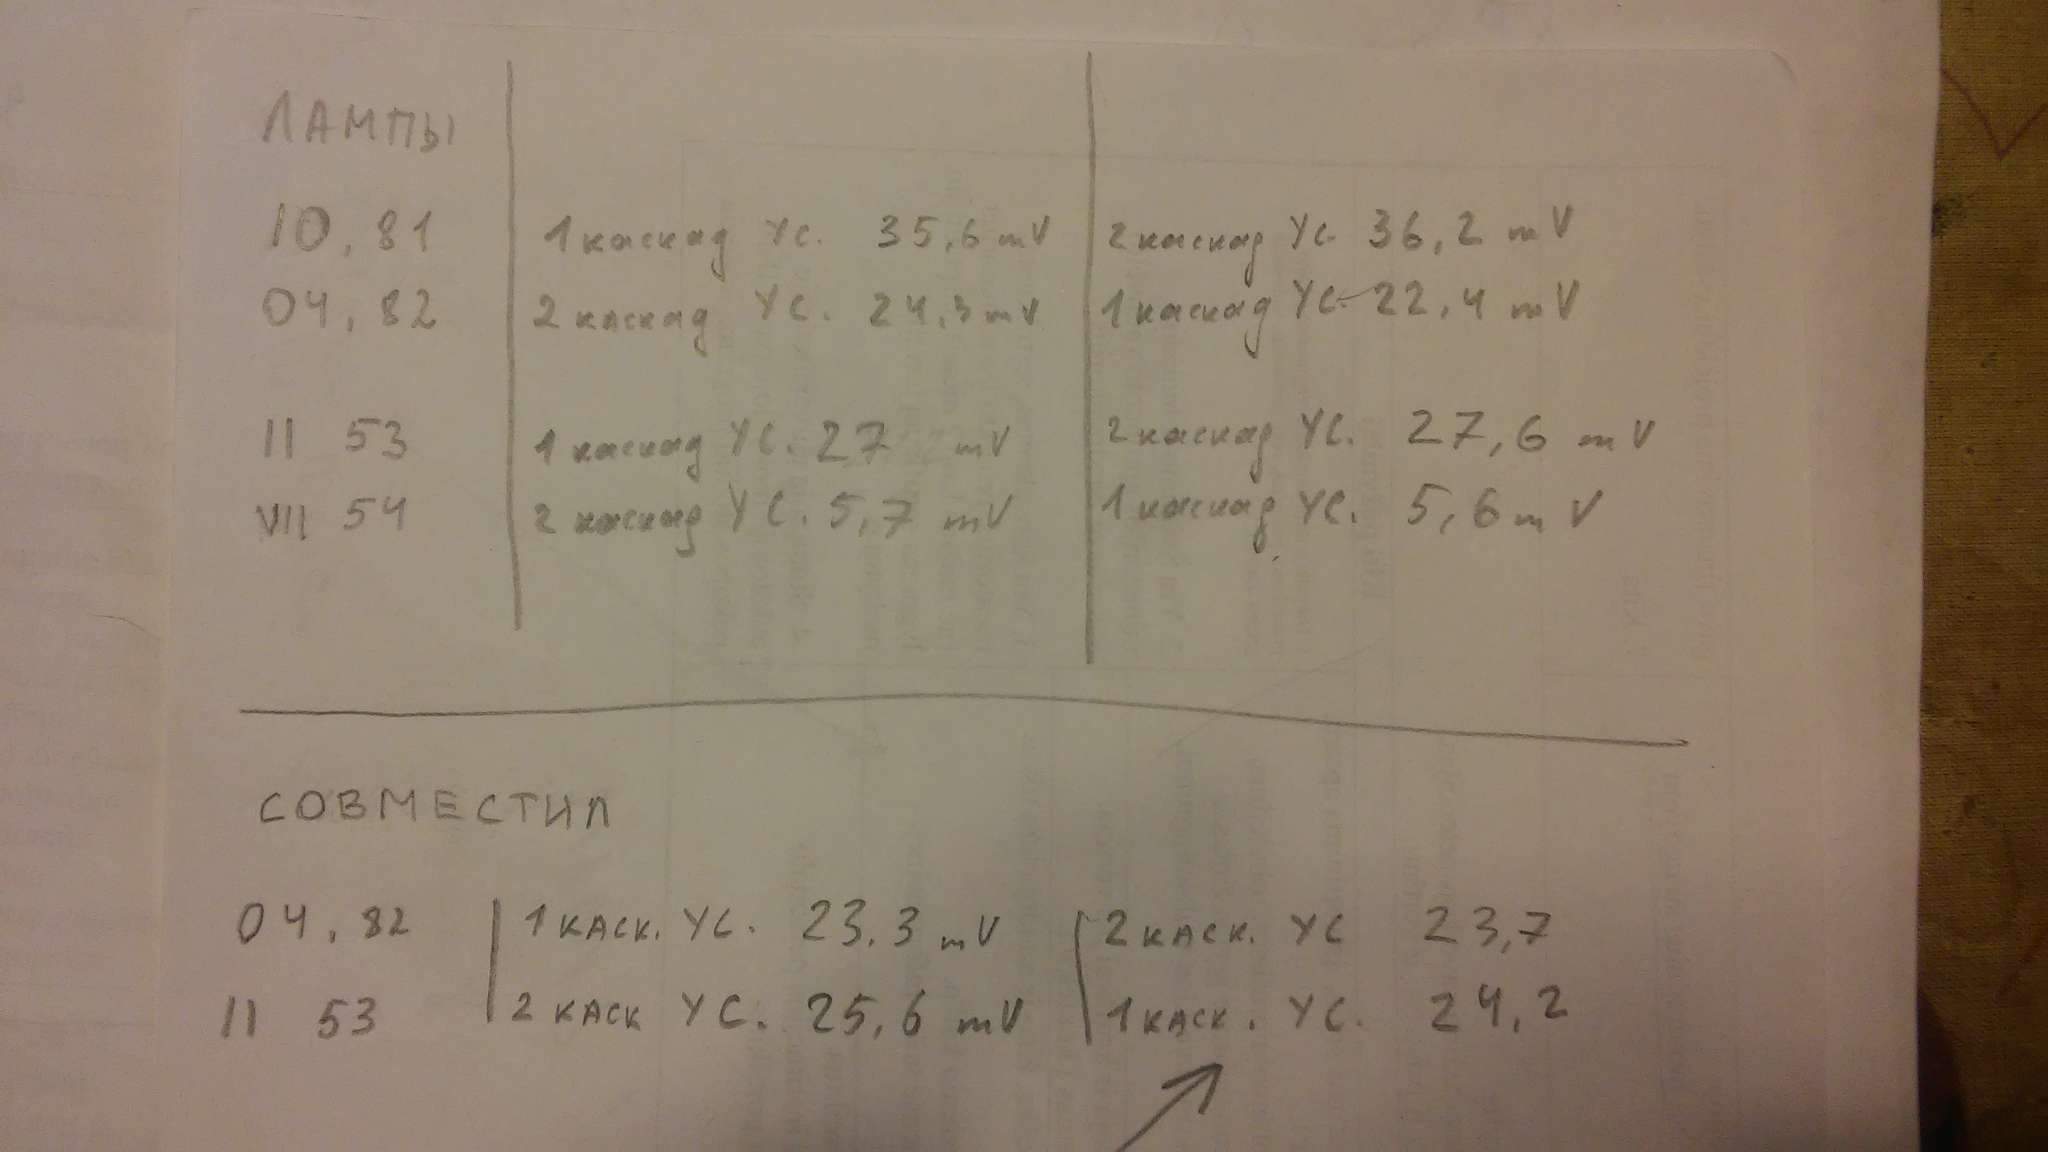 ЛАМПЫ
10,81 1 каскад УС. 35,6 mV 2 каскад УС. 36,2 mV
04,82 2 каскад УС. 24,3 mV 1 каскад УС. 22,4 mV
II 53 1 каскад УС. 27 mV 2 каскад УС. 27,6 mV
VII 54 2 каскад УС. 5,7 mV 1 каскад УС. 5,6 mV
СОВМЕСТИЛ
04,82 1 КАСК. УС. 23,3 mV 2 КАСК. УС 23,7
II 53 2 КАСК УС. 25,6 mV 1 КАСК. УС. 24,2